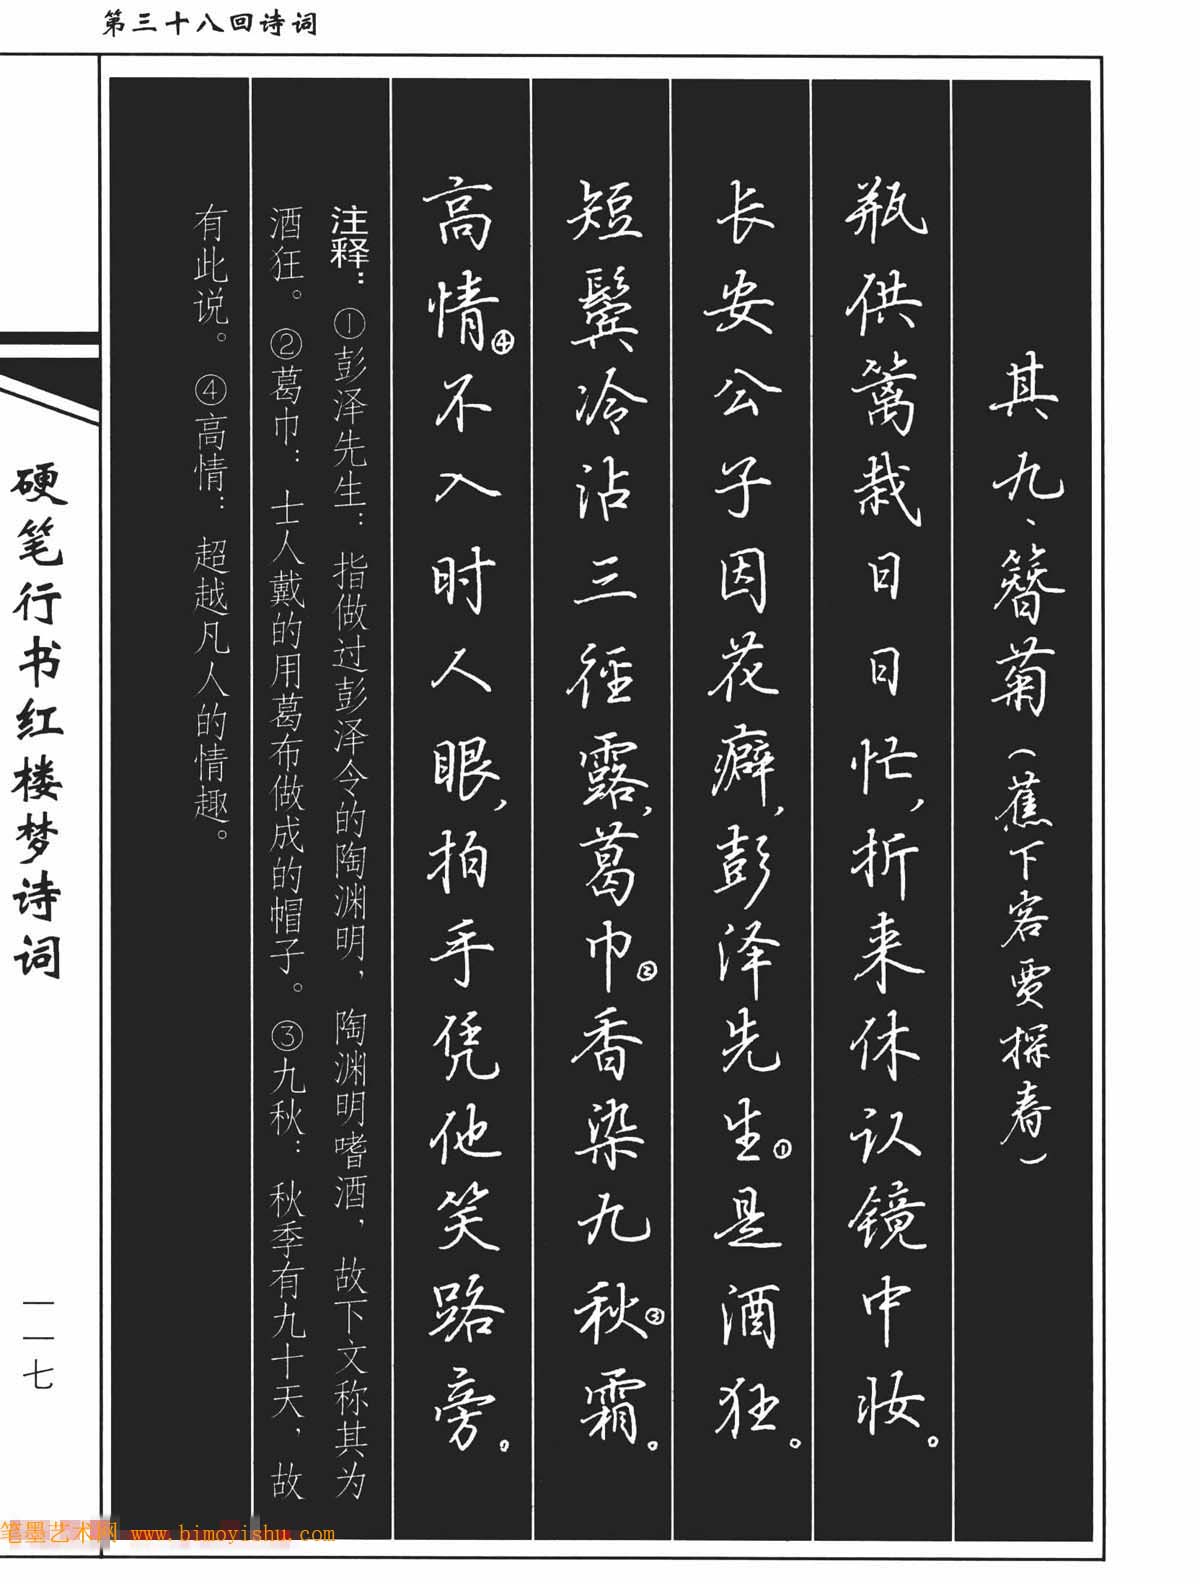 第三十八回诗词
其九、簪菊（蕉下客贾探春）
瓶供篱栽日日忙，折来休认镜中妆。
长安公子因花癖，彭泽先生①是酒狂。
短鬓冷沾三径露，葛巾②香染九秋③霜。
高情④不入时人眼，拍手凭他笑路旁。
注释：①彭泽先生：指做过彭泽令的陶渊明，陶渊明嗜酒，故下文称其为
酒狂。②葛巾：士人戴的用葛布做成的帽子。③九秋：秋季有九十天，故
有此说。④高情：超越凡人的情趣。
硬笔行书红楼梦诗词
一一七
笔墨艺术网 www.bimoyishu.com